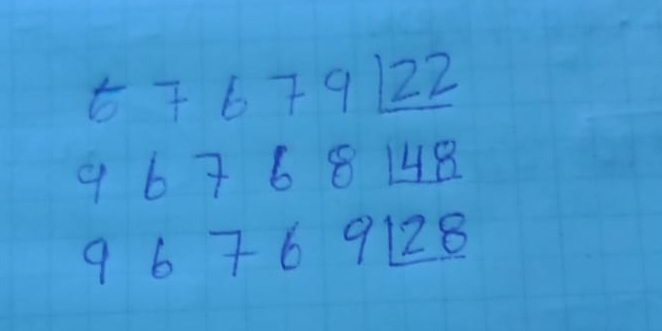 67679 |22
96768 |48
96769 |28